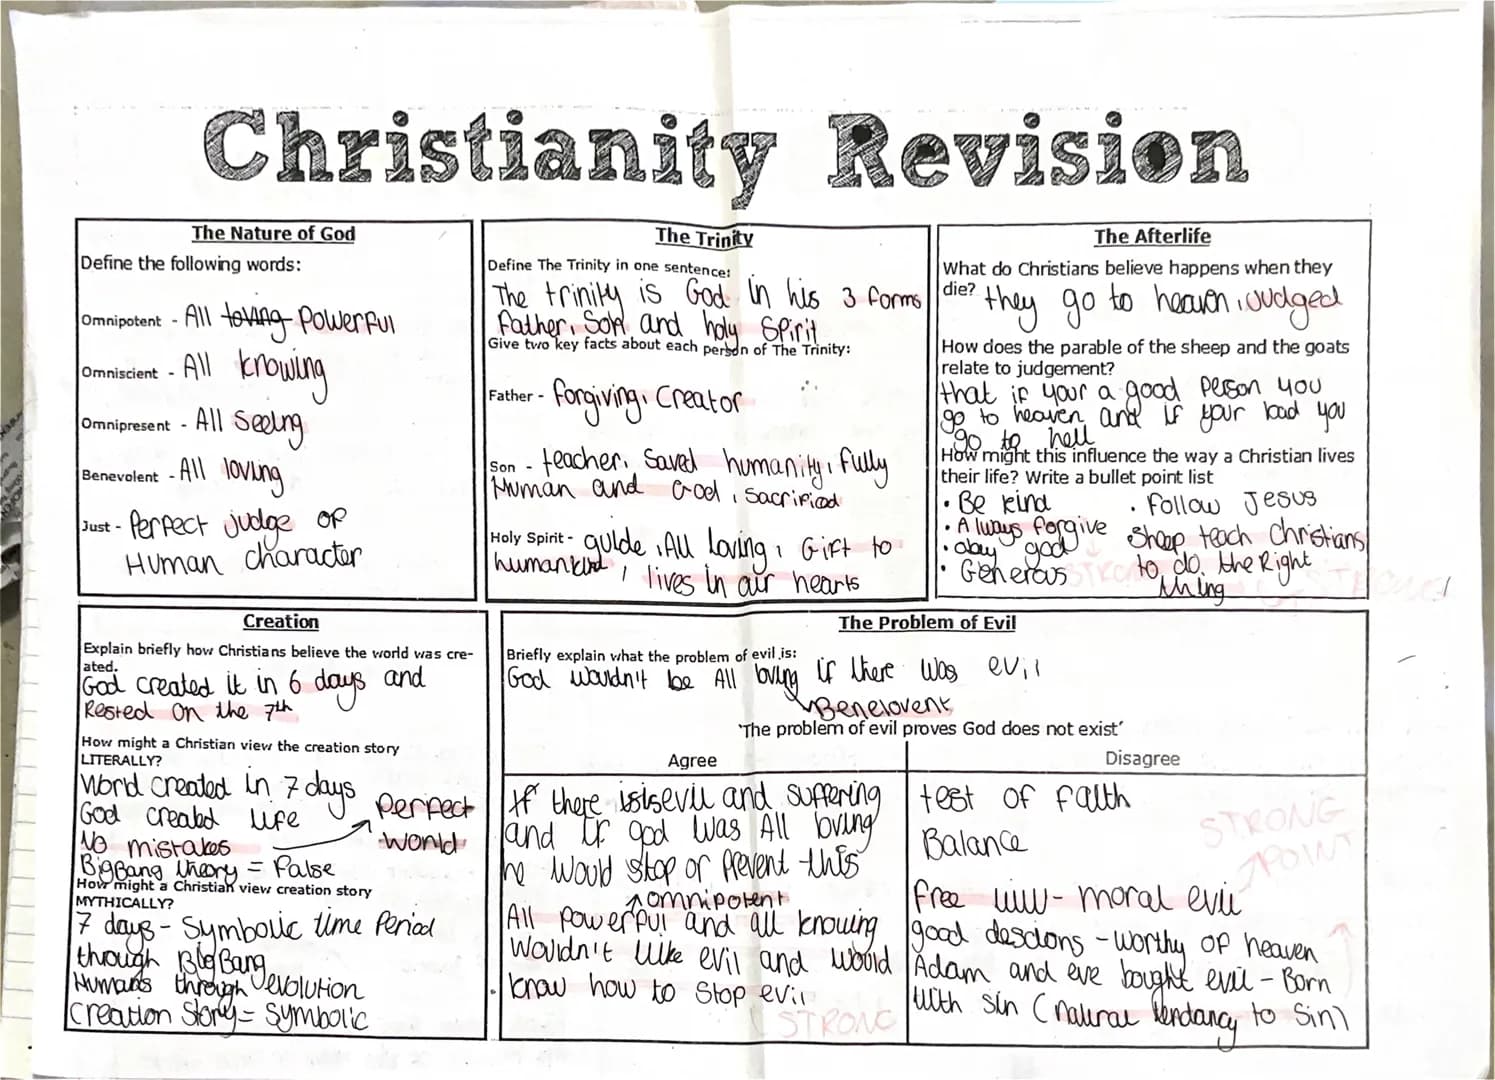 Christianity Revision
The Nature of God
Define the following words:
Omnipotent - All loving Powerful
Omniscient - All knowing
Omnipresent - All Seeing
Benevolent - All loving
Just - Perfect judge of
Human character
The Trinity
Define The Trinity in one sentence:
The trinity is God in his 3 forms
father, Son and holy Spirit
Give two key facts about each person of The Trinity:
Father - forgiving, Creator
Son - teacher, Saved humanity, fully
Human and God, Sacrificed
Holy Spirit - guide, All Loving, Gift to
humankind, lives in our hearts
The Afterlife
What do Christians believe happens when they
die? they go to heaven, Judged
How does the parable of the sheep and the goats
relate to judgement?
that if your a good person you
go to heaven and if your bad you
go to hell
How might this influence the way a Christian lives
their life? Write a bullet point list
• Be kind
• Always forgive
• obay god
• Generous
STRONG
• Follow Jesus
Sheep teach Christians
to do the Right
thing
STRONG
Creation
Explain briefly how Christians believe the world was cre-
ated.
God created it in 6 days and
Rested on the 7th
How might a Christian view the creation story
LITERALLY?
World created in 7 days
God created life
No mistakes
Perfect
World
BigBang theory = False
How might a Christian view creation story
MYTHICALLY?
7 days - Symbolic time Period
through BigBang
Humans through evolution
Creation Story = Symbolic
The Problem of Evil
Briefly explain what the problem of evil is:
God wouldn't be All loving if there was evil
Benelovent
'The problem of evil proves God does not exist'
Agree
If there is evil and suffering
and if god was All loving
he would stop or Prevent this
omnipotent
All powerful and all knowing
wouldn't like evil and would
know how to stop evil
STRONG
Disagree
test of faith
Balance
STRONG
POINT
free will - moral evil
good descions - worthy of heaven
Adam and eve bought evil - Born
with sin (natural tendancy to sin)